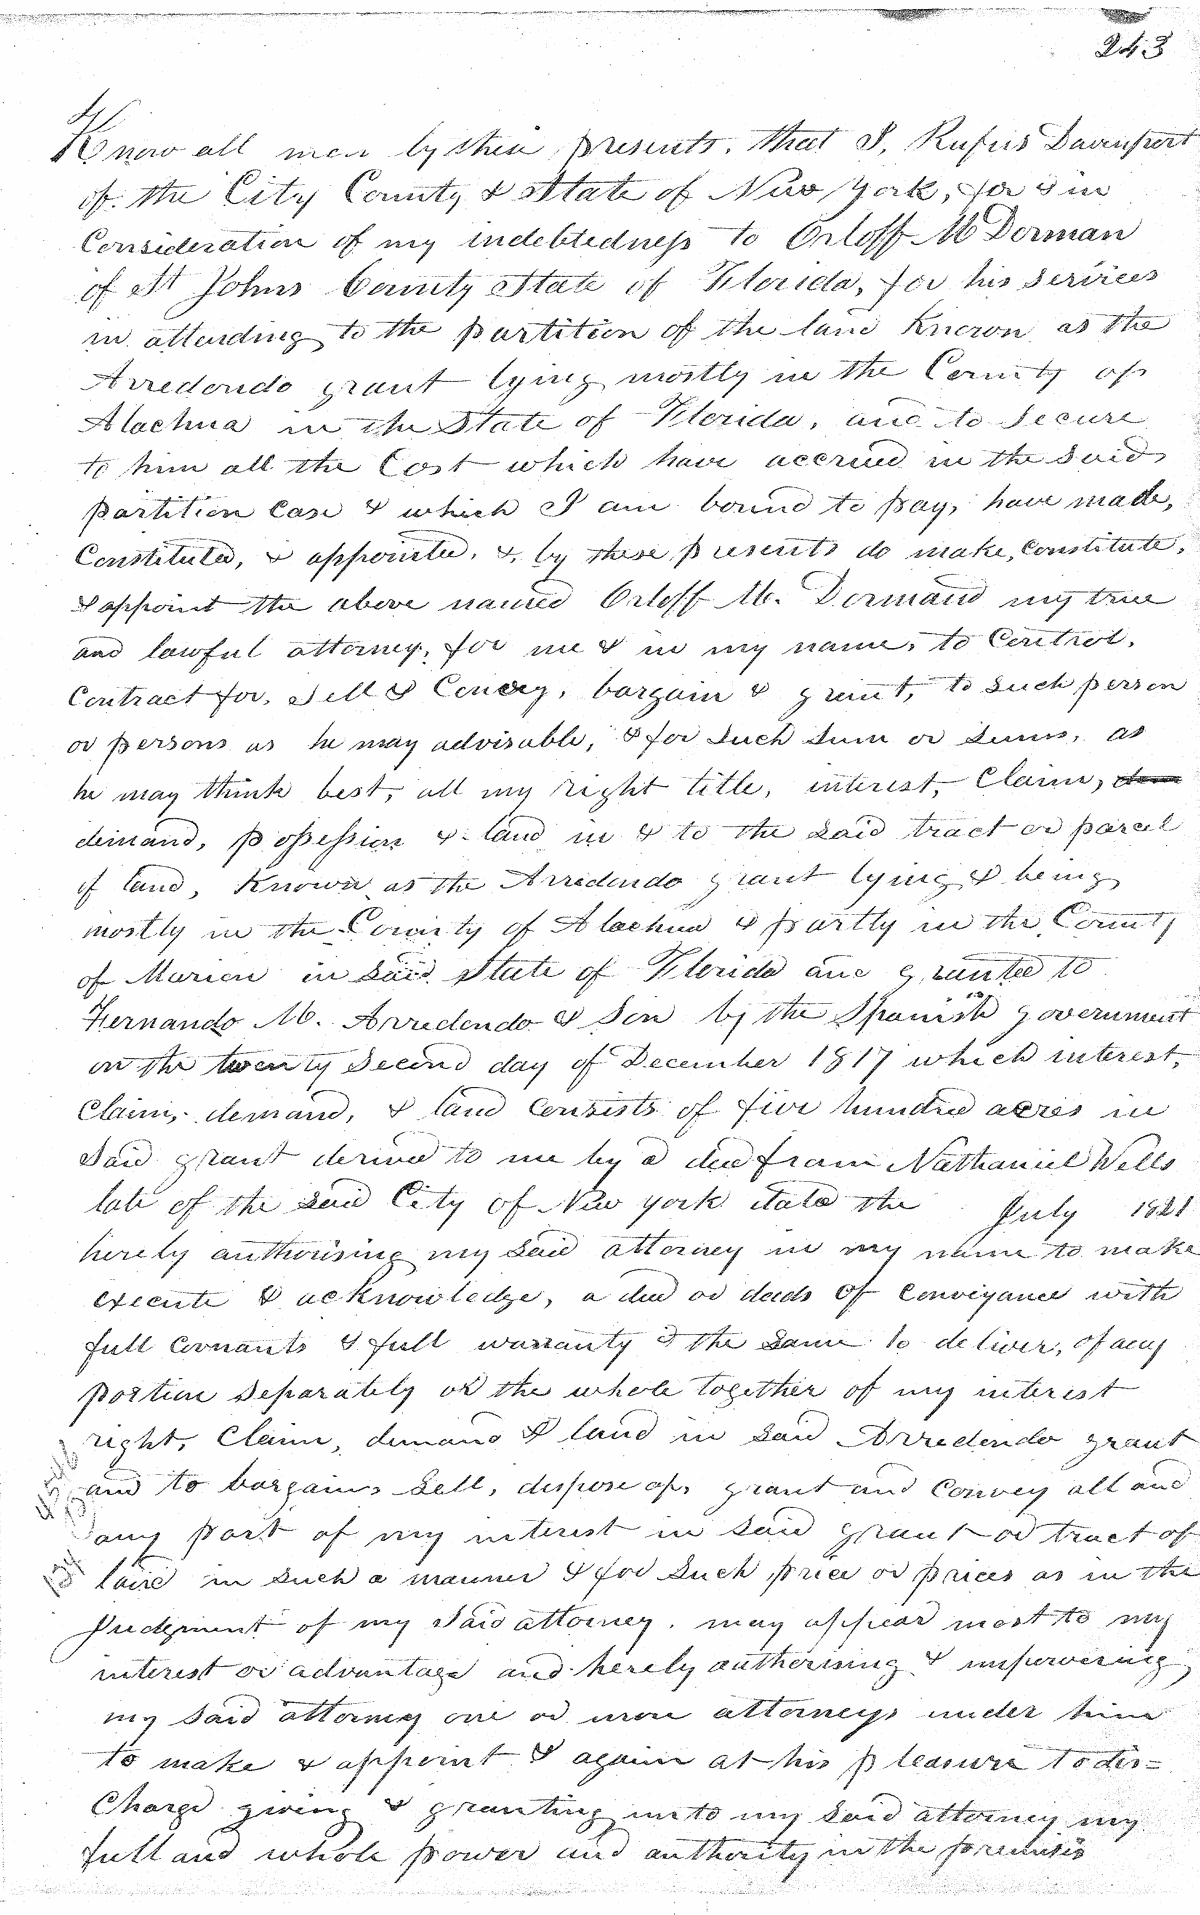 243
Know all men by thea presents, that I, Rufus Davenport
of the City County & State of New York, for & in
Consideration of my indebtedness to Orloff M Dorman
of St Johns County State of Florida, for his services
in attending to the partition of the land Known as the
Arredondo grant lying mostly in the County of
Alachua in the State of Florida, and to secure
to him all the Cost which have accrued in the said
partition Case & which I am bound to pay, have made,
Constituted, & appointed, & by these presents do make, constitute,
& appoint the above named Orloff M. Dormand my true
and lawful attorney, for me & in my name, to Control,
Contract for, Sell & Convey, bargain & grant, to such person
or persons as he may advisable, & for such sum or sums, as
he may think best, all my right title, interest, Claim, dem
demand, possession & land in & to the said tract or parcel
of land, Known as the Arredondo grant lying & being
mostly in the County of Alachua & partly in the County
of Marion in said State of Florida and granted to
Fernando M. Arredondo & Son by the Spanish government
on the twenty Second day of December 1817 which interest,
Claim, demand, & land Consists of five hundred acres in
Said grant derived to me by a deed from Nathaniel Wells
late of the said City of New York date the July 1821
herely authorising my said attorney in my name to make
execute & acknowledge, a deed or deeds of Conveyance with
full Covnants & full warranty & the same to deliver, of any
portion separately or the whole together of my interest
right, Claim, demand & land in said Arredondo grant
and to bargain, Sell, dispose of, grant and Convey all and
any part of my interest in said grant or tract of
land in such a manner & for such price or prices as in the
Judgment of my said attorney may appear most to my
interest or advantage and herely authorising & impowering
my said attorney one or more attorneys under him
to make & appoint & again at his pleasure to dis=
Charge giving & granting unto my said attorney my
full and whole power and authority in the premises